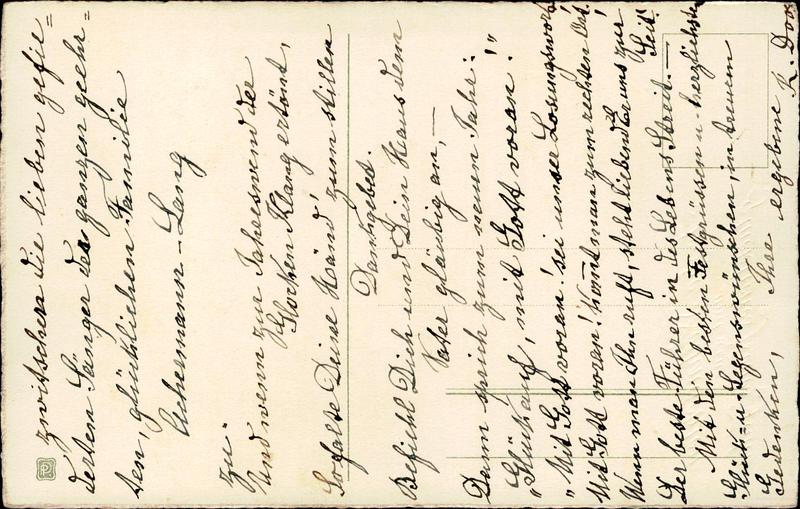 zwitschern die lieben gefie=
derten Sänger der ganzen geehr=
ten, glücklichen Familie
Achermann-Lang
zu.
Und wenn zur Jahreswend der
Glocken Klang ertönt,
So falte Deine Händ' zum stillen
Dankgebet.
Befiehl Dich und Dein Haus dem
Vater gläubig an, —
Dann sprich zum neuen Jahr:
"Glück auf, mit Gott voran!"
"Mit Gott voran! sei unser Losungswort
Mit Gott voran! Kommt man zum rechten Ort!
Wenn man Ihn ruft, steht liebend Er uns zur
Seit!
Der beste Führer in des Lebens Streit. —
Mit den besten Festgrüssen u. herzlichsten
Glück- u. Segenswünschen, in treuem
Gedenken, Ihre ergebene K. Doo